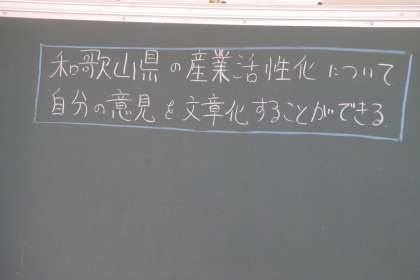 和歌山県の産業活性化について
自分の意見を文章化することができる